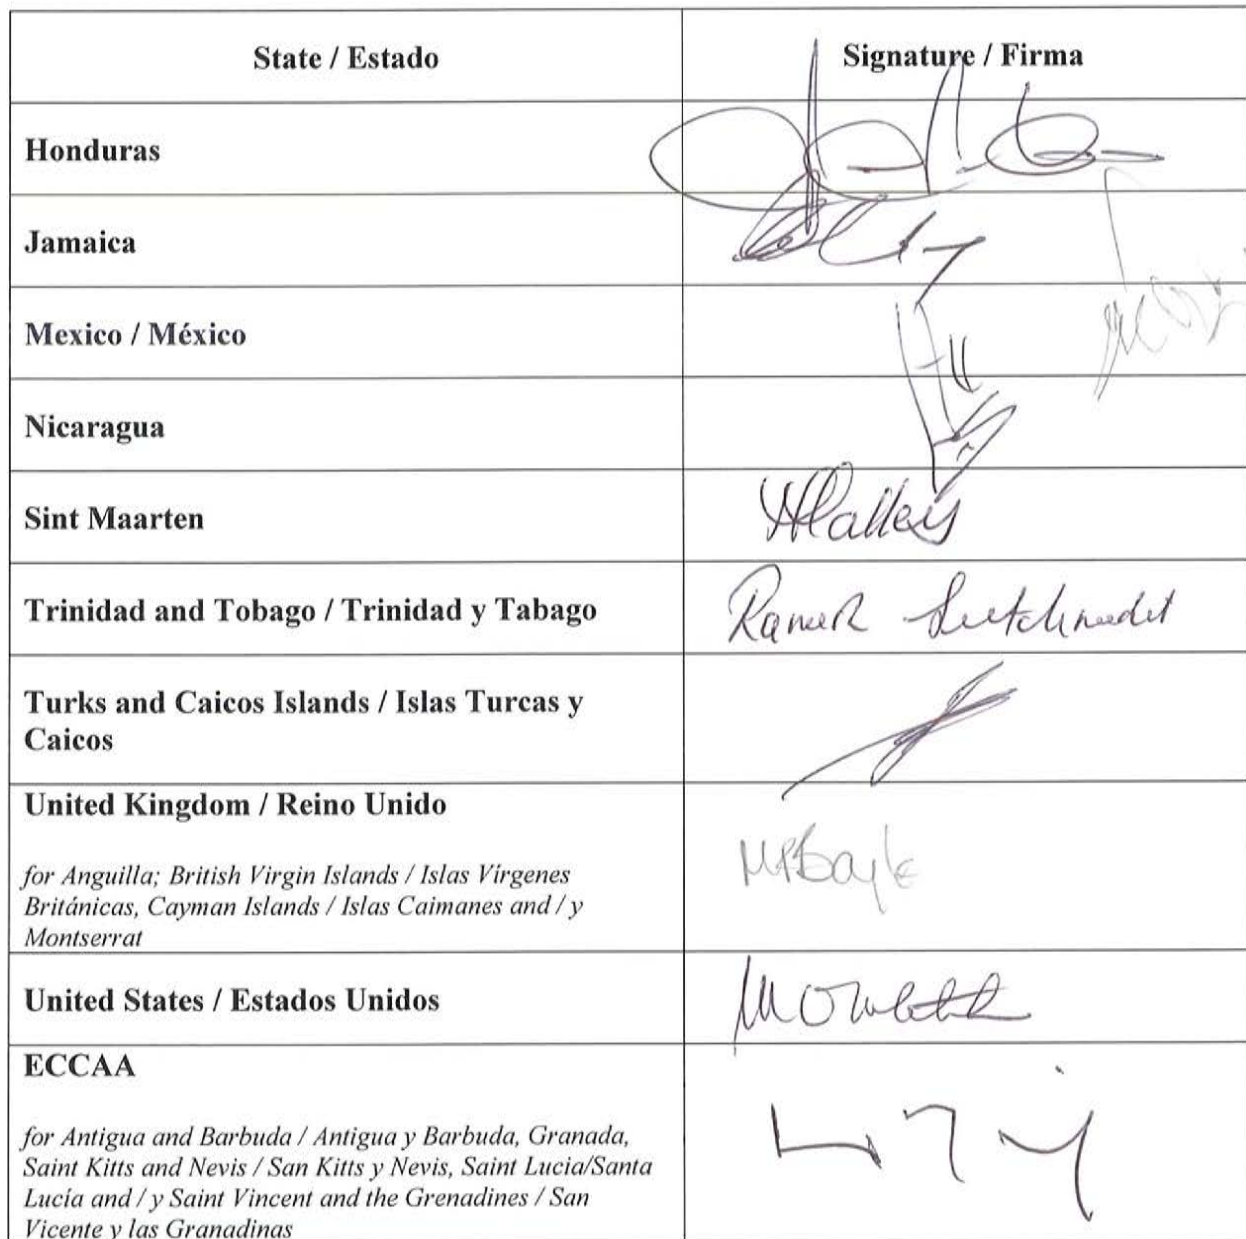 State / Estado
Signature / Firma
Honduras
Jamaica
Mexico / México
Nicaragua
Sint Maarten
Trinidad and Tobago / Trinidad y Tabago
Turks and Caicos Islands / Islas Turcas y
Caicos
United Kingdom / Reino Unido
for Anguilla; British Virgin Islands / Islas Vírgenes
Británicas, Cayman Islands / Islas Caimanes and / y
Montserrat
United States / Estados Unidos
ECCAA
for Antigua and Barbuda / Antigua y Barbuda, Granada,
Saint Kitts and Nevis / San Kitts y Nevis, Saint Lucia/Santa
Lucía and / y Saint Vincent and the Grenadines / San
Vicente y las Granadinas